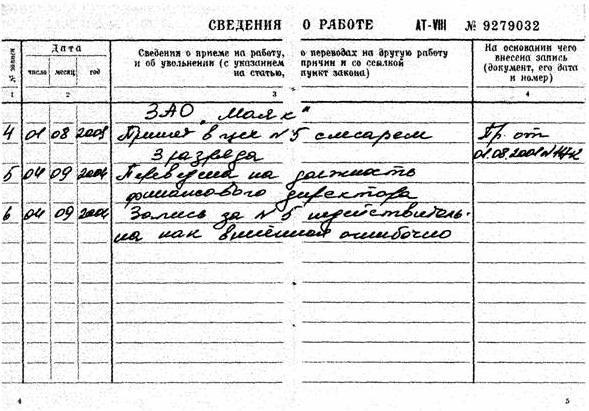 СВЕДЕНИЯ О РАБОТЕ АТ-VIII № 9279032
№ записи
Дата
число месяц год
Сведения о приеме на работу, о переводах на другую работу
и об увольнении (с указанием причин и со ссылкой
на статью, пункт закона)
На основании чего
внесена запись
(документ, его дата
и номер)
1 2 3 4
ЗАО „Маяк"
4 01 08 Принят в цех №5 слесарем Пр. от
3 разряда 01.08.2001
5 04 09 2004 Переведена на должность
финансового директора
6 04 09 2004 Запись за №5 недействитель-
на как внесённая ошибочно
4 5